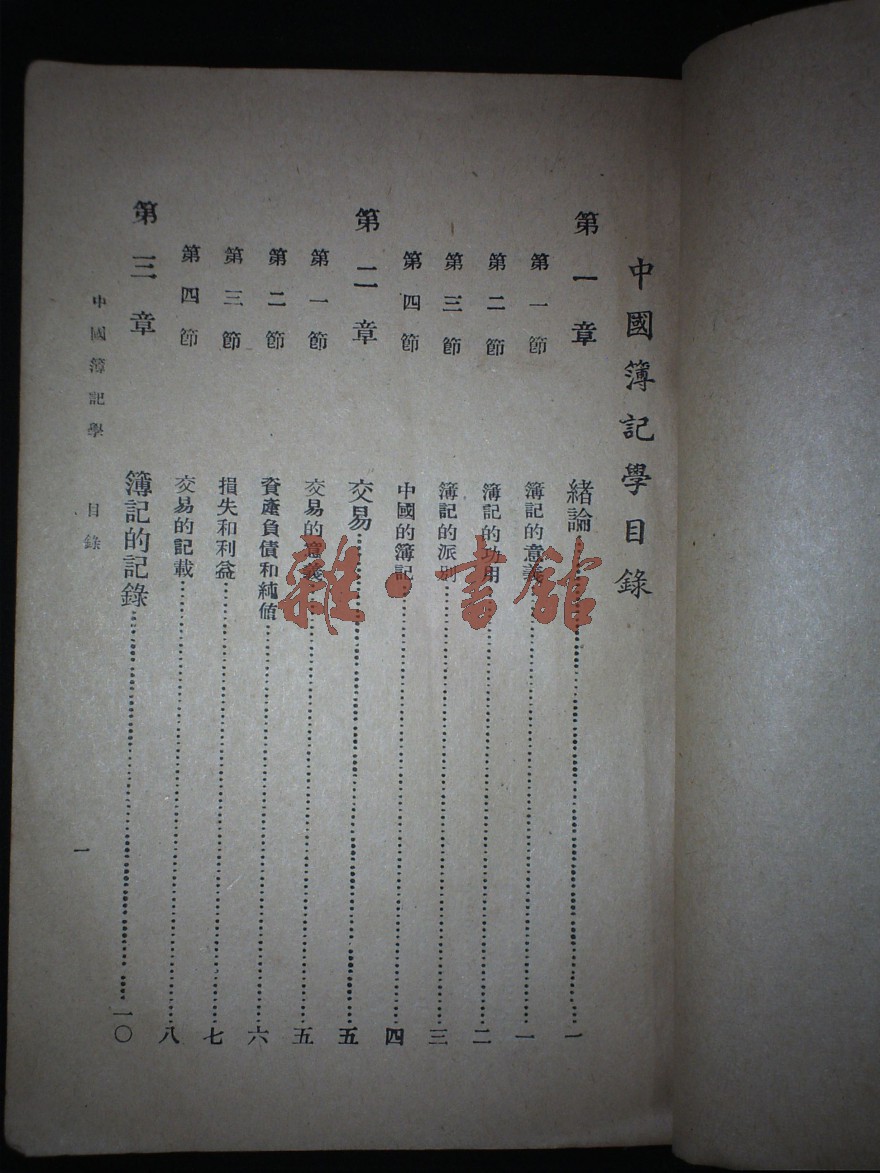 中國簿記學目錄
第一章 緒論 一
第一節 簿記的意義 一
第二節 簿記的功用 二
第三節 簿記的派別 三
第四節 中國的簿記 四
第二章 交易 五
第一節 交易的意義 五
第二節 資產負債和純值 六
第三節 損失和利益 七
第四節 交易的記載 八
第三章 簿記的記錄 一〇
中國簿記學 目錄 一
雜·書館